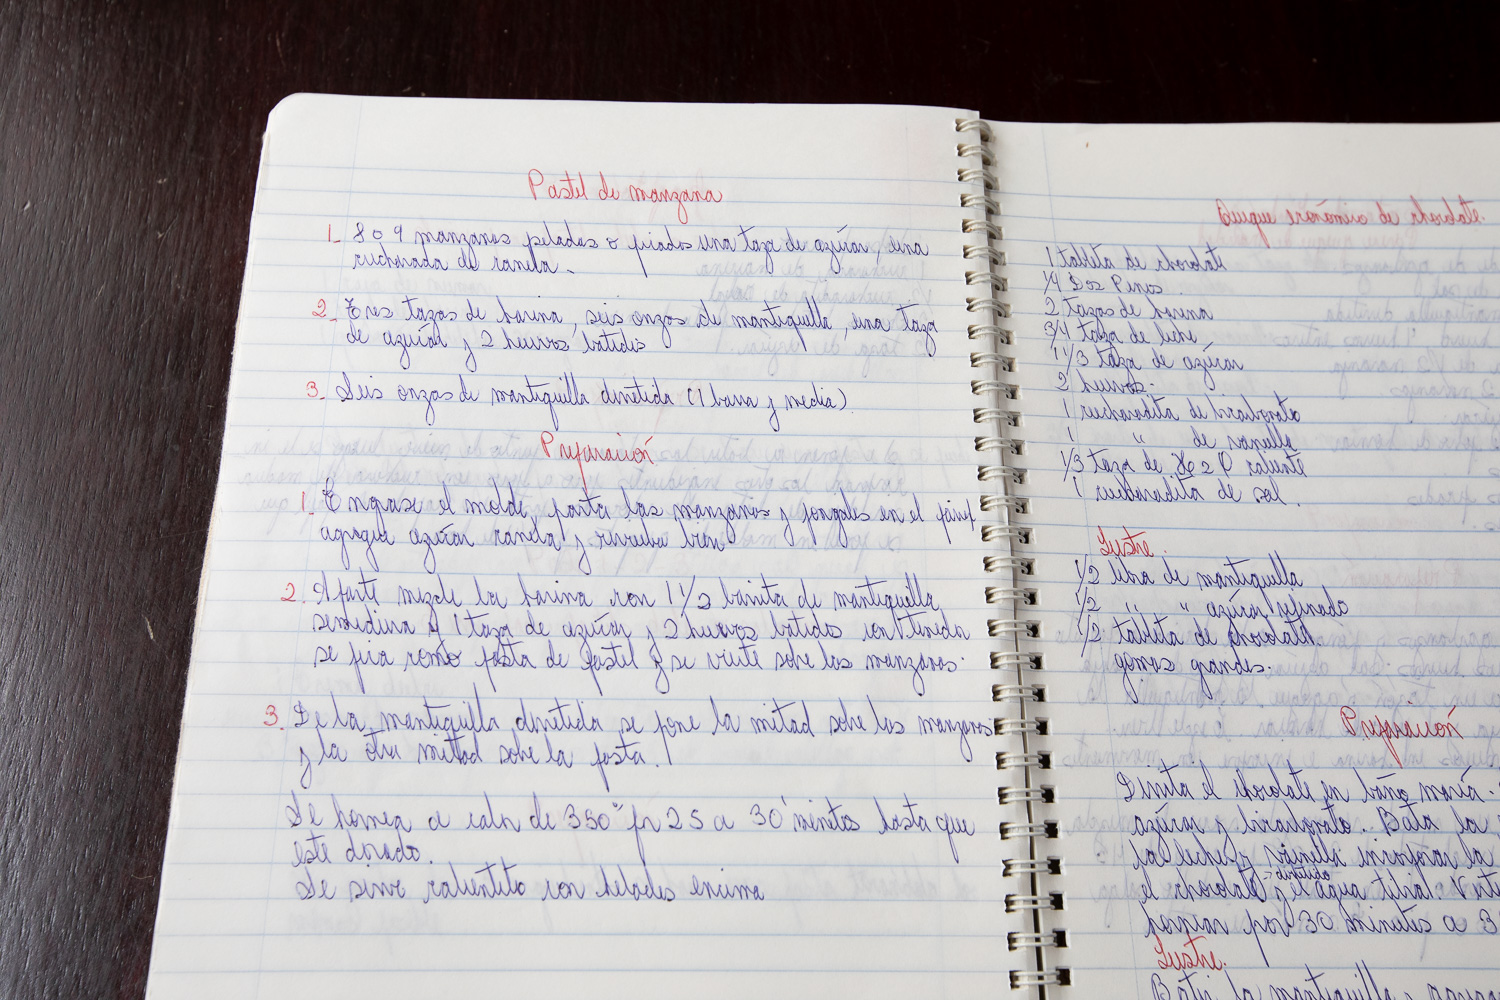 Pastel de manzana
1. 8 o 9 manzanas peladas o picadas una taza de azúcar, una
cucharada de canela.
2. Tres tazas de harina, seis onzas de mantiquilla, una taza
de azúcar y 2 huevos batidos
3. Seis onzas de mantiquilla diretida (1 barra y media)
Preparación
1. Engrase el molde, parta las manzanas y pongales en el
agregue azúcar canela y revuelva bien
2. Aparte mezcle la harina con 1 1/2 barrita de mantiquilla
semidura y 1 taza de azúcar y 2 huevos batidos
se pica como pasta de pastel y se vierte sobre las manzanas.
3. De la mantiquilla diretida se pone la mitad sobre las manzanas
y la otra mitad sobre la pasta.
Se hornea a calor de 350° por 25 a 30 minutos hasta que
este dorado.
Se sirve calientito con helados encima
Queque económico de chocolate.
1 tableta de chocolate
1/4 Dos Pinos.
2 tazas de harina
3/4 taza de leche
1 1/3 taza de azúcar
2 huevos.
1 cucharadita de bicarbonato
1 " de vainilla
1/3 taza de H2O caliente
1 cucharadita de sal.
Lustre.
1/2 libra de mantiquilla
1/2 " " azúcar refinado
1/2 tableta de chocolate
grandes.
Preparación
Dirita el chocolate en baño maría.
azúcar y bicarbonato. Bata la
la leche y vainilla incorporar la
diretido
el chocolate y el agua tibia.
hornear por 30 minutos a 3
Lustre.
Batir la mantiquilla,